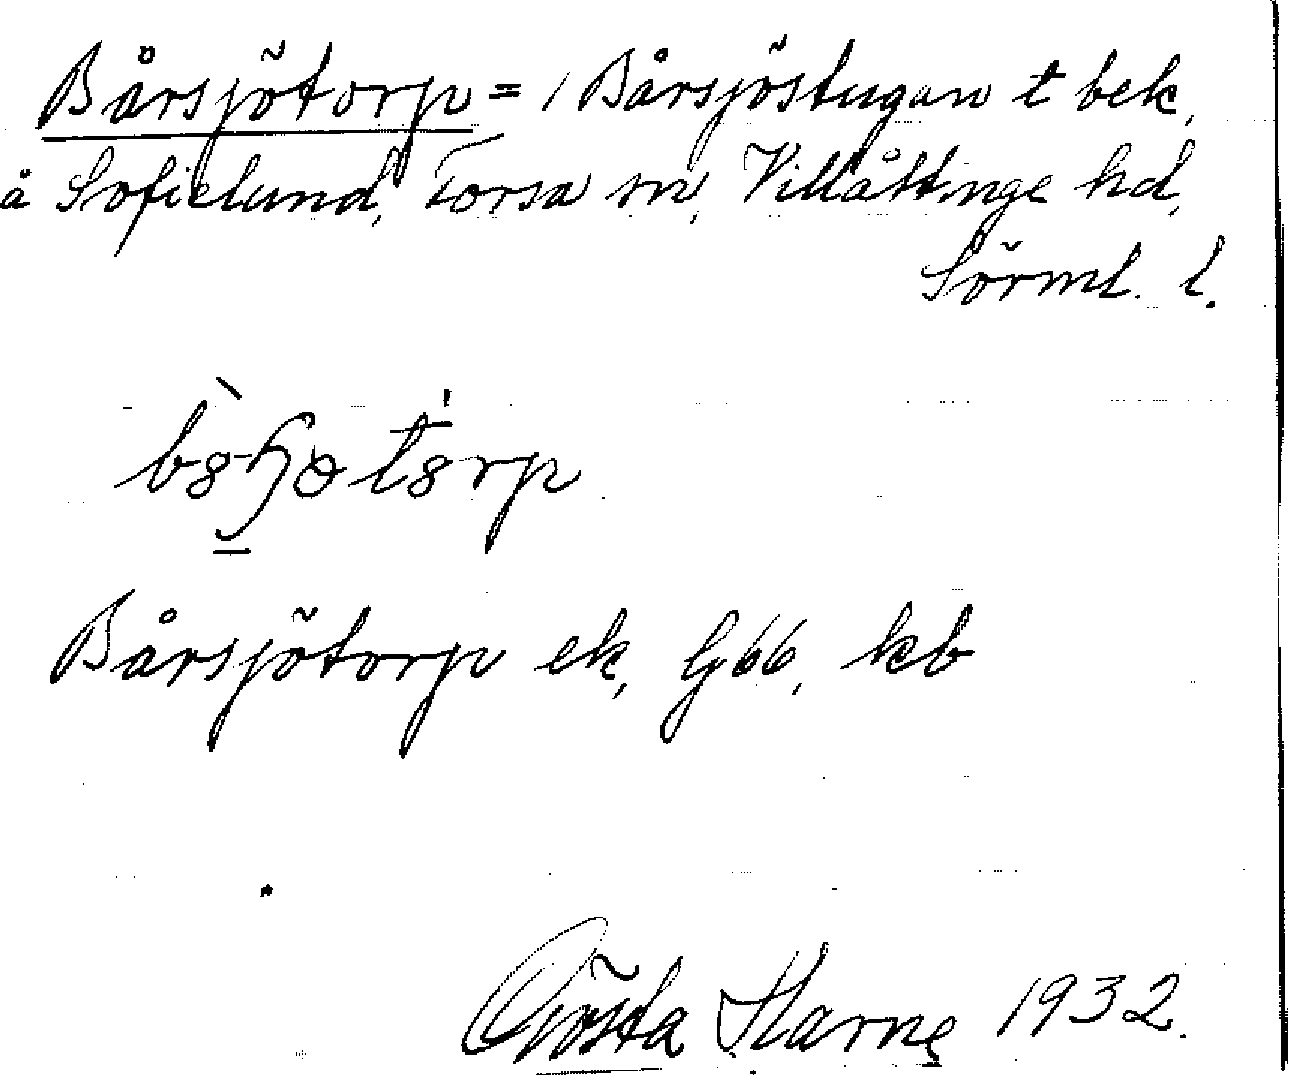 Bårsjötorp = / Bårsjöstugan t bek,
å Sofielund, Torsa sn, Villåttinge hd,
Sörml. l.
Bårsjötorp ek, G66, kb
Gösta Harne 1932.